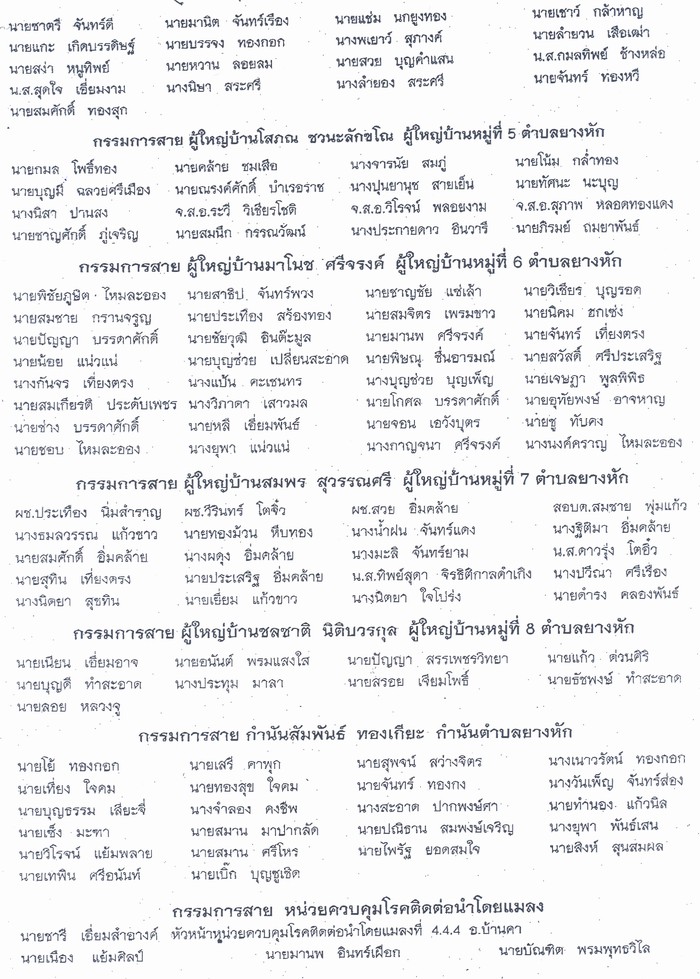 นายชาตรี จันทร์ดี นายมานิต จันทร์เรือง นายแช่ม นกยูงทอง นายเชาว์ กล้าหาญ
นายแกะ เกิดบรรดิษฐ์ นายบรรจง ทองกอก นางพเยาว์ สุภางค์ นายลำยวน เสือเฒ่า
นายสง่า หนูทิพย์ นายหวาน ลอยลม นายสวย บุญคำแสน น.ส.กมลทิพย์ ช้างหล่อ
น.ส.สุดใจ เอี่ยมงาม นางนิษา สระศรี นางลำยอง สระศรี นายจันทร์ ทองหวี
นายสมศักดิ์ ทองสุก
กรรมการสาย ผู้ใหญ่บ้านโสภณ ชวนะลักขโณ ผู้ใหญ่บ้านหมู่ที่ 5 ตำบลยางหัก
นายกมล โพธิ์ทอง นายคล้าย ชมเสือ นางจารนัย สมภู่ นายโน้ม กล่ำทอง
นายบุญมี ฉลวยศรีเมือง นายณรงค์ศักดิ์ บำเรอราช นางปุนยานุช สายเย็น นายทัศนะ นะบุญ
นางนิสา ปานสง จ.ส.อ.ระวี วิเชียรโชติ จ.ส.อ.วิโรจน์ พลอยงาม จ.ส.อ.สุภาพ หลอดทองแดง
นายชาญศักดิ์ ภู่เจริญ นายสมนึก กรรณวัฒน์ นางประกายดาว อินวารี นายภิรมย์ ถมยาพันธ์
กรรมการสาย ผู้ใหญ่บ้านมาโนช ศรีจรงค์ ผู้ใหญ่บ้านหมู่ที่ 6 ตำบลยางหัก
นายพิชัยภูษิต ไหมละออง นายสาธิป จันทร์พวง นายชาญชัย แซ่เล้า นายวิเชียร บุญรอด
นายสมชาย กรานจรูญ นายประเทือง สร้องทอง นายสมจิตร เพรมขาว นายนิคม ฮกเซ่ง
นายปัญญา บรรดาศักดิ์ นายชัยวุฒิ อินต๊ะมูล นายมานพ ศรีจรงค์ นายจันทร์ เที่ยงตรง
นายน้อย แน่วแน่ นายบุญช่วย เปลี่ยนสะอาด นายพิษณุ ชื่นอารมณ์ นายสวัสดิ์ ศรีประเสริฐ
นางกันจร เที่ยงตรง นางแป้น คะเชนทร นางบุญช่วย บุญเพ็ญ นายเจษฎา พูลพิพิธ
นายสมเกียรติ ประดับเพชร นางวิภาดา เสาวมล นายโกศล บรรดาศักดิ์ นายอุทัยพงษ์ อาจหาญ
นายช่าง บรรดาศักดิ์ นายหลี เอี่ยมพันธ์ นายจอน เอวังบุตร นายชู ทับคง
นายชอบ ไหมละออง นางยุพา แน่วแน่ นางกาญจนา ศรีจรงค์ นางนงค์คราญ ไหมละออง
กรรมการสาย ผู้ใหญ่บ้านสมพร สุวรรณศรี ผู้ใหญ่บ้านหมู่ที่ 7 ตำบลยางหัก
ผช.ประเทือง นิ่มสำราญ ผช.วีรินทร์ โตจิ๋ว ผช.สวย อิ่มคล้าย สอบต.สมชาย พุ่มแก้ว
นางธมลวรรณ แก้วขาว นายทองม้วน หีบทอง นางน้ำฝน จันทร์แดง นางฐิติมา อิ่มคล้าย
นายสมศักดิ์ อิ่มคล้าย นางผดุง อิ่มคล้าย นางมะลิ จันทร์ยาม น.ส.ดาวรุ่ง โตอิ๋ว
นายสุทิน เที่ยงตรง นายประเสริฐ อิ่มคล้าย น.ส.ทิพย์สุดา จิรธิติกาลดำเกิง นางปวีณา ศรีเรือง
นางนิตยา สุขทิน นายเยี่ยม แก้วขาว นางนิตยา ใจโปร่ง นายดำรง คลองพันธ์
กรรมการสาย ผู้ใหญ่บ้านชลชาติ นิติบวรกุล ผู้ใหญ่บ้านหมู่ที่ 8 ตำบลยางหัก
นายเนียน เอี่ยมอาจ นายอนันต์ พรมแสงใส นายปัญญา สรรเพชรวิทยา นายแก้ว ด่วนศิริ
นายบุญดี ทำสะอาด นางประทุม มาลา นายสรอย เจียมโพธิ์ นายธัชพงษ์ ทำสะอาด
นายลอย หลวงจู
กรรมการสาย กำนันสัมพันธ์ ทองเกียะ กำนันตำบลยางหัก
นายโย้ ทองกอก นายเสรี คาพุก นายสุพจน์ สว่างจิตร นางเนาวรัตน์ ทองกอก
นายเที่ยง ใจคม นายทองสุข ใจคม นายจันทร์ ทองกง นางวันเพ็ญ จันทร์ส่อง
นายบุญธรรม เสียะจี่ นางจำลอง คงชีพ นางสะอาด ปากพงษ์ศา นายทำนอง แก้วนิล
นายเซ็ง มะฑา นายสมาน มาปากลัด นายปณิธาน สมพงษ์เจริญ นางยุพา พันธ์เสน
นายวิโรจน์ แย้มพลาย นายสมาน ศรีโหร นายไพรัฐ ยอดสมใจ นายสิงห์ สุนสมผล
นายเทพิน ศรีอนันท์ นายเบิ๊ก บุญชูเชิด
กรรมการสาย หน่วยควบคุมโรคติดต่อนำโดยแมลง
นายชารี เอี่ยมสำอางค์ หัวหน้าหน่วยควบคุมโรคติดต่อนำโดยแมลงที่ 4.4.4 อ.บ้านคา
นายเนือง แย้มศิลป์ นายมานพ อินทร์เผือก นายบัณฑิต พรมพุทธวิไล